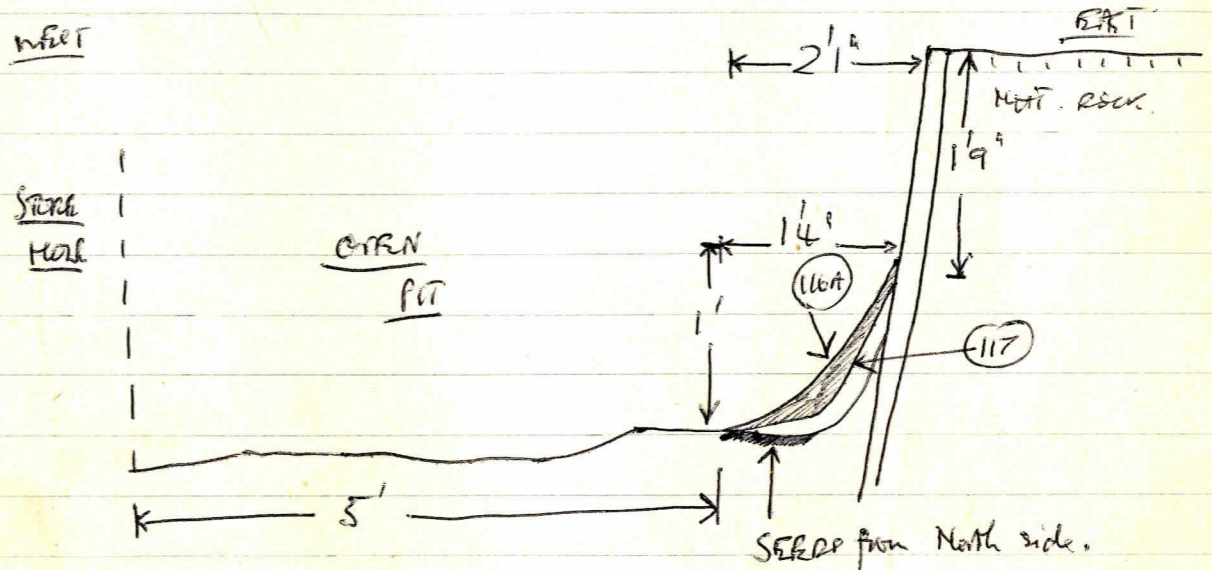 WEST
EAST
2'1"
NAT. ROCK.
1'9"
STAKE
HOLE
1'4"
OPEN
PIT
116A
1'
117
5'
from North side.